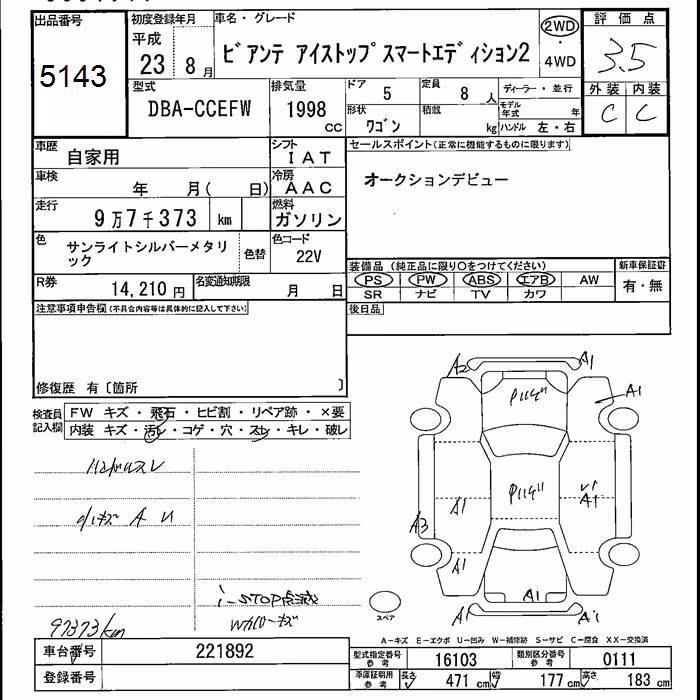 出品番号
5143
初度登録年月
平成
23 8月
車名・グレード
ビアンテ アイストップ スマートエディション2
2WD
・
4WD
評価点
3.5
外装 内装
C C
型式
DBA-CCEFW
排気量
1998
CC
ドア
5
定員
8 人
形状
ワゴン
積載
kg
ディーラー・並行
モデル年式 年
ハンドル 左・右
車歴
自家用
シフト
IAT
車検
年 月( 日)
冷房
AAC
走行
9万7千373 km
燃料
ガソリン
色
サンライトシルバーメタリック
色替
色コード
22V
R券
14,210 円
名変通知期限
月 日
セールスポイント(正常に機能するものに限ります)
オークションデビュー
装備品 (純正品に限り○をつけてください)
PS PW ABS エアB AW
SR ナビ TV カワ
新車保証書
有・無
後日品
注意事項申告欄(不具合内容等は具体的に記入して下さい)
修復歴 有〔箇所 〕
検査員記入欄
FW キズ・飛石・ヒビ割・リペア跡・×要
内装 キズ・汚レ・コゲ・穴・スレ・キレ・破レ
i-STOP点滅
97373km
A2 A1
A1
A1
A1
A3
A1
A1
A1 A1
スペア
A−キズ E−エクボ U−凹み W−補修跡 S−サビ C−腐食 XX−交換済
車台番号
221892
登録番号
型式指定番号
参考
16103
類別区分番号
参考
0111
車庫証明用
参考
長さ
471 cm
幅
177 cm
高さ
183 cm